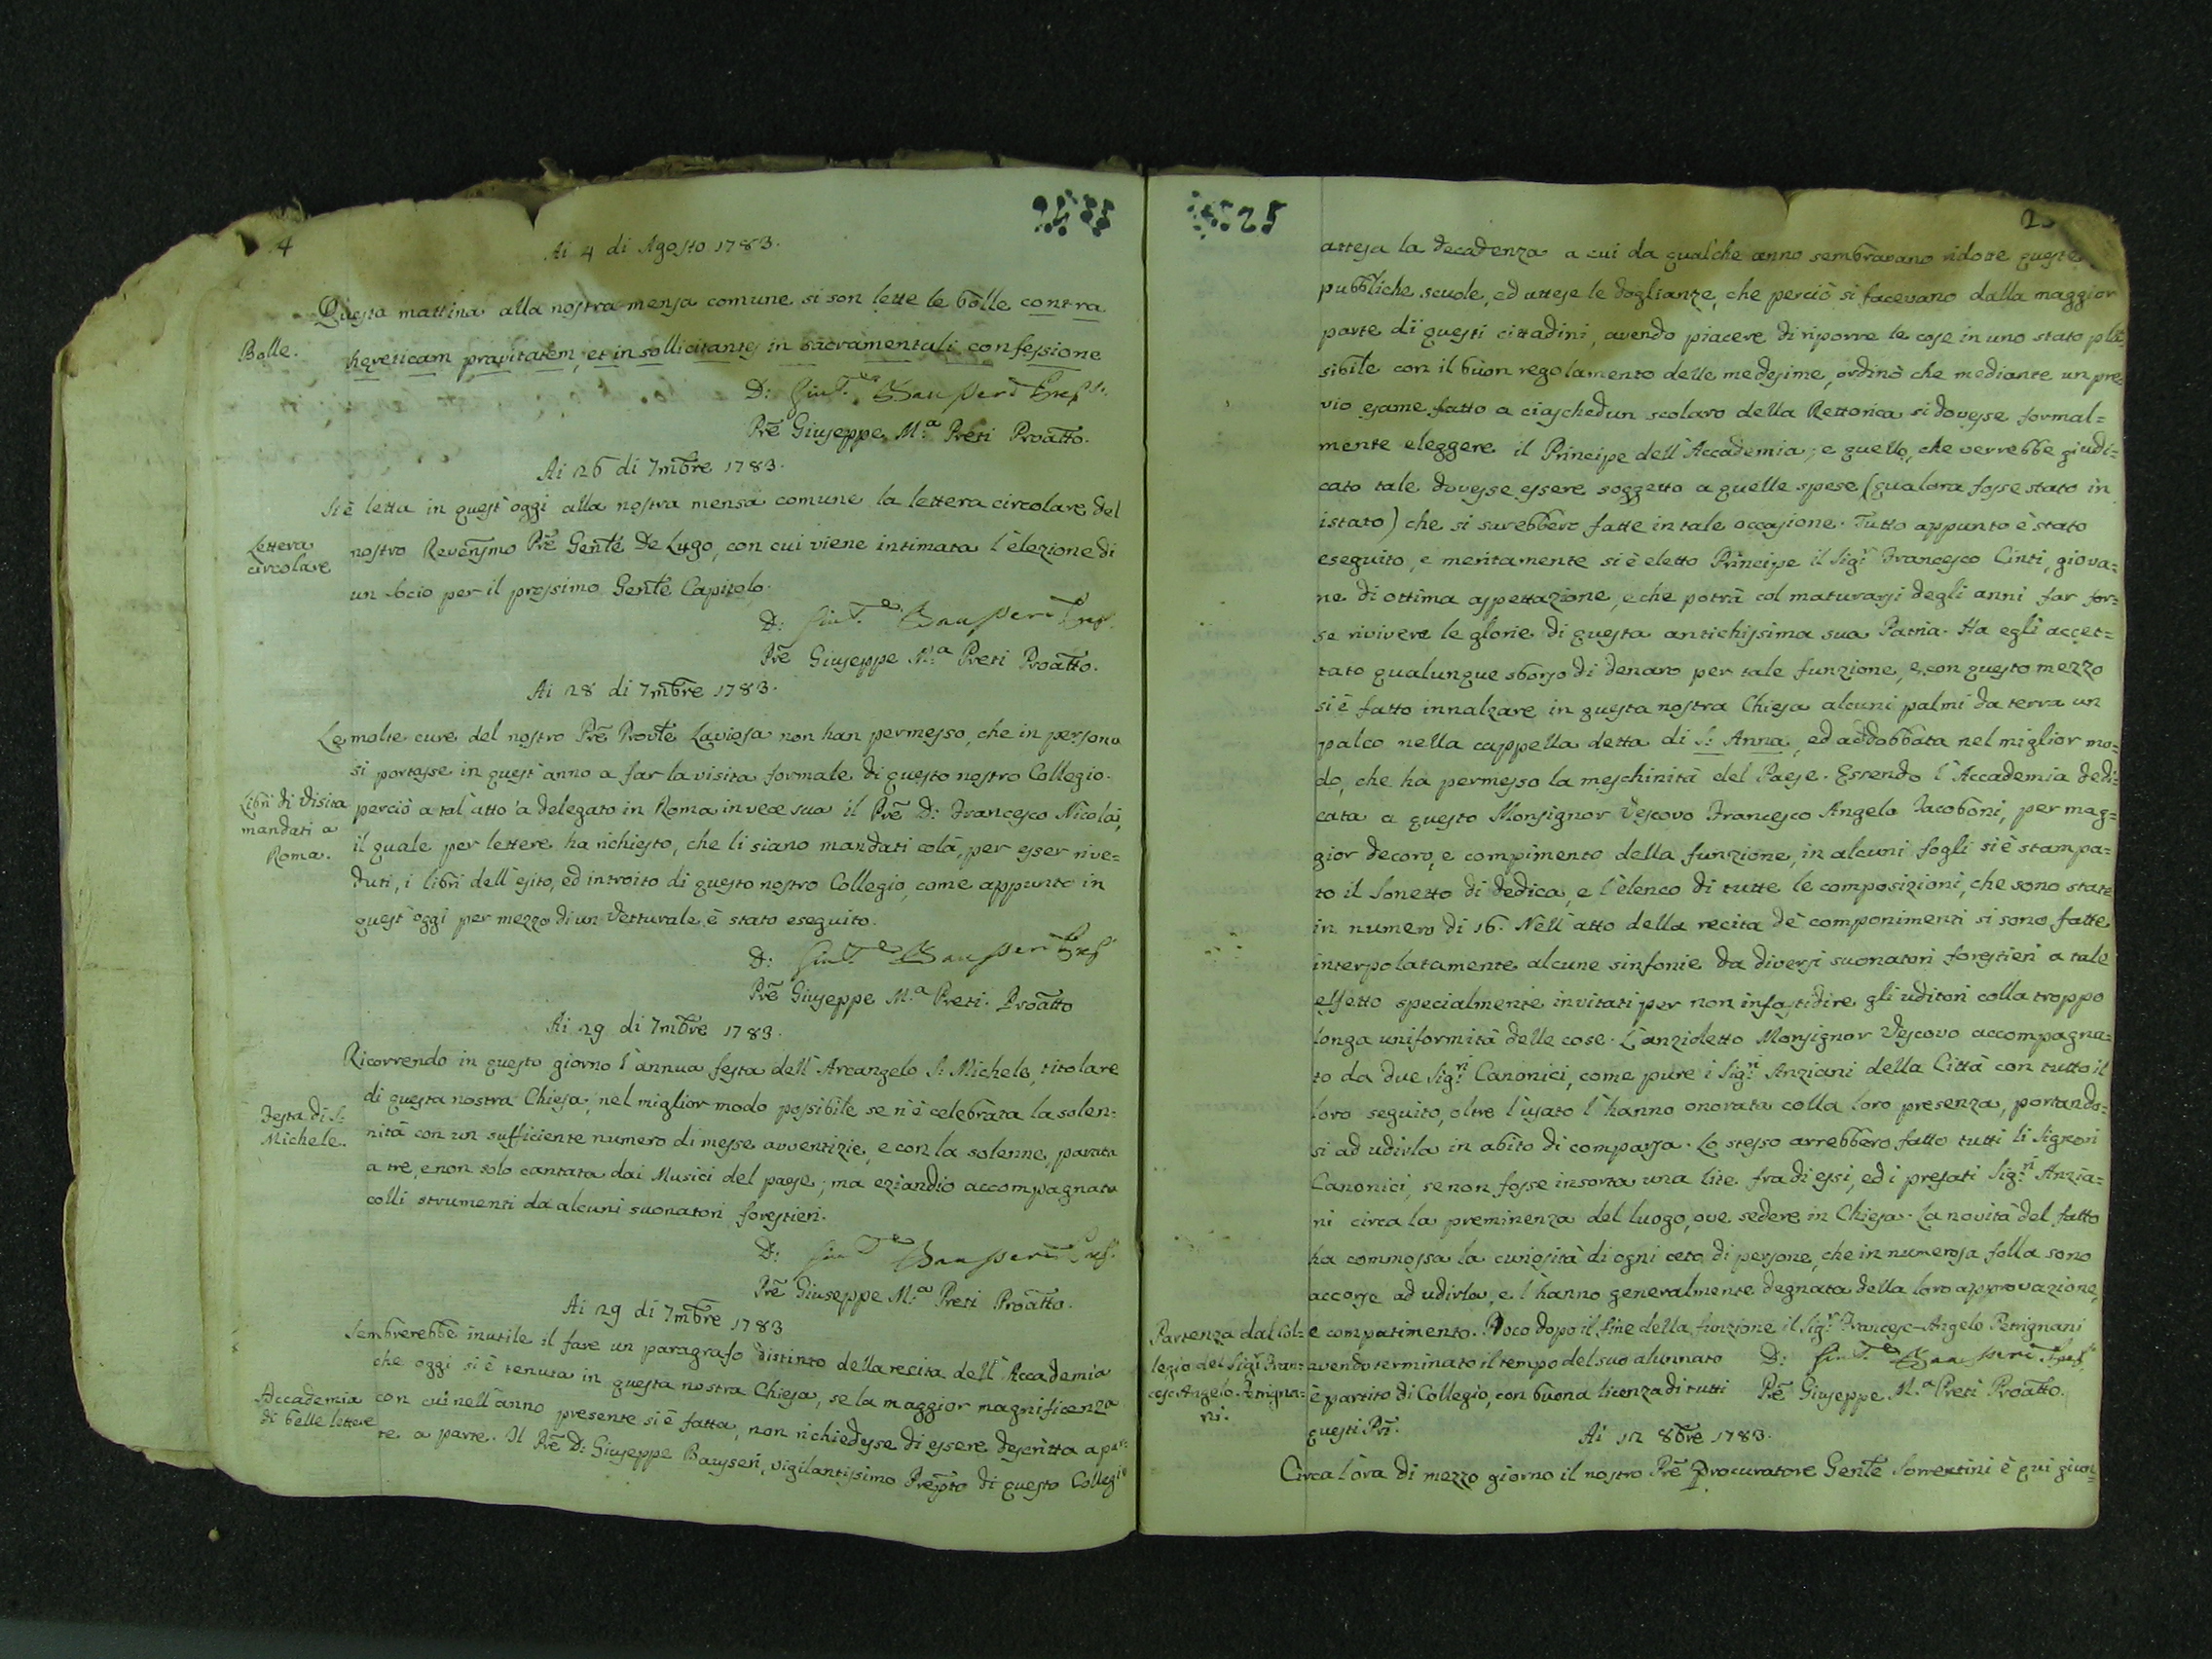 4
Ai 4 di Agosto 1783.
Bolle.
Questa mattina alla nostra mensa comune si son lette le bolle contra
hereticam pravitatem, et in sollicitantes in sacramentali confessione
D: Giu.e Bauseri Prep.
Prē Giuseppe M.a Preti Proātto.
Ai 26 di 7mbre 1783.
Lettera
circolare
Si è letta in quest'oggi alla nostra mensa comune la lettera circolare del
nostro Revensmo Prē Genle De Lugo, con cui viene intimata l'elezione di
un Socio per il prossimo Genle Capitolo.
D: Giu.e Bauseri Prep.
Prē Giuseppe M.a Preti Proātto.
Ai 28 di 7mbre 1783.
Libri di visita
mandati a
Roma.
Le molte cure del nostro Prē Provle Laviosa non han permesso, che in persona
si portasse in quest'anno a far la visita formale di questo nostro Collegio.
perciò a tal'atto à delegato in Roma in vece sua il Prē D: Francesco Nicolai,
il quale per lettere ha richiesto, che li siano mandati colà, per esser rive=
duti, i libri dell'esito, ed introito di questo nostro Collegio, come appunto in
quest'oggi per mezzo di un Vetturale è stato eseguito.
D: Giu.e Bauseri Prep
Prē Giuseppe M.a Preti. Proātto
Ai 29 di 7mbre 1783.
Festa di S:
Michele.
Ricorrendo in questo giorno l'annua festa dell'Arcangelo S: Michele, titolare
di questa nostra Chiesa, nel miglior modo possibile se n'è celebrata la solen=
nità con un sufficiente numero di messe avventizie, e con la solenne, parata
a tre, e non solo cantata dai Musici del paese; ma eziandio accompagnata
colli strumenti da alcuni suonatori forestieri.
D: Giu.e Bauseri Prep.
Prē Giuseppe M.a Preti Proātto.
Ai 29 di 7mbre 1783
Accademia
di belle lettere
Sembrerebbe inutile il fare un paragrafo distinto della recita dell'Accademia
che oggi si è tenuta in questa nostra Chiesa, se la maggior magnificenza
con cui nell'anno presente si è fatta, non richiedesse di essere descritta a par=
te a parte. Il Prē D: Giuseppe Bauseri, vigilantissimo Prepto di questo Collegio
25
attesa la decadenza a cui da qualche anno sembravano ridotte queste
pubbliche scuole, ed attese le doglianze, che perciò si facevano dalla maggior
parte di questi cittadini, avendo piacere di riporre le cose in uno stato plau=
sibile con il buon regolamento delle medesime, ordinò che mediante un pre
vio esame fatto a ciaschedun scolaro della Rettorica si dovesse formal=
mente eleggere il Principe dell'Accademia; e quello, che verrebbe giudi=
cato tale dovesse essere soggetto a quelle spese (qualora fosse stato in
istato) che si sarebbero fatte in tale occasione. Tutto appunto è stato
eseguito, e meritamente si è eletto Principe il Sigr Francesco Cinti, giova=
ne di ottima aspettazione, e che potrà col maturarsi degli anni far for=
se rivivere le glorie di questa antichissima sua Patria. Ha egli accet=
tato qualunque sborso di denaro per tale funzione, e con questo mezzo
si è fatto innalzare in questa nostra Chiesa alcuni palmi da terra un
palco nella cappella detta di S: Anna, ed addobbata nel miglior mo=
do, che ha permesso la meschinità del Paese. Essendo l'Accademia dedi=
cata a questo Monsignor Vescovo Francesco Angelo Jacoboni, per mag=
gior decoro, e compimento della funzione, in alcuni fogli si è stampa=
to il Sonetto di dedica, e l'elenco di tutte le composizioni, che sono state
in numero di 16. Nell'atto della recita de' componimenti si sono fatte
interpolatamente alcune sinfonie da diversi suonatori forestieri a tale
effetto specialmente invitati per non infastidire gli uditori colla troppo
longa uniformità delle cose. L'anzidetto Monsignor Vescovo accompagna=
to da due Sigri Canonici, come pure i Sigri Anziani della Città con tutto il
loro seguito, oltre l'usato l'hanno onorata colla loro presenza, portando=
si ad udirla in abito di comparsa. Lo stesso avrebbero fatto tutti li Signori
Canonici, se non fosse insorta una lite fra di essi, ed i prefati Sigri Anzia=
ni circa la preminenza del luogo, ove sedere in Chiesa. La novità del fatto
ha commossa la curiosità di ogni ceto di persone, che in numerosa folla sono
accorse ad udirla, e l'hanno generalmente degnata della loro approvazione,
e compatimento. Poco dopo il fine della funzione il Sigr Francesc-Angelo Petrignani
avendo terminato il tempo del suo alunnato
è partito di Collegio, con buona licenza di tutti
questi Pri.
Partenza dal Col=
legio del Sigr Fran=
cesc-Angelo Petrigna=
ni.
D: Giu.e Bauseri Prep.
Prē Giuseppe M.a Preti Proātto.
Ai 12 8bre 1783.
Circa l'ora di mezzo giorno il nostro Prē Procuratore Genle Sorrentini è qui giun=